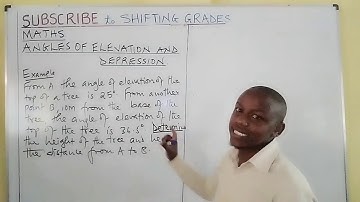 SUBSCRIBE to SHIFTING GRADES
MATHS
ANGLES OF ELEVATION AND
DEPRESSION
Example
From A the angle of elevation of the
top of a tree is 25° from another
Point B, 10m from the base of the
tree the angle of elevation of the
top of the tree is 36.5° Determine
the height of the tree and
the distance from A to B.